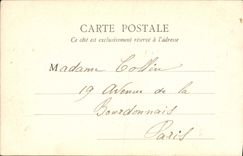 CARTE POSTALE
Ce côté est exclusivement réservé à l'adresse
Madame Collin
19 Avenue de la
Bourdonnais
Paris